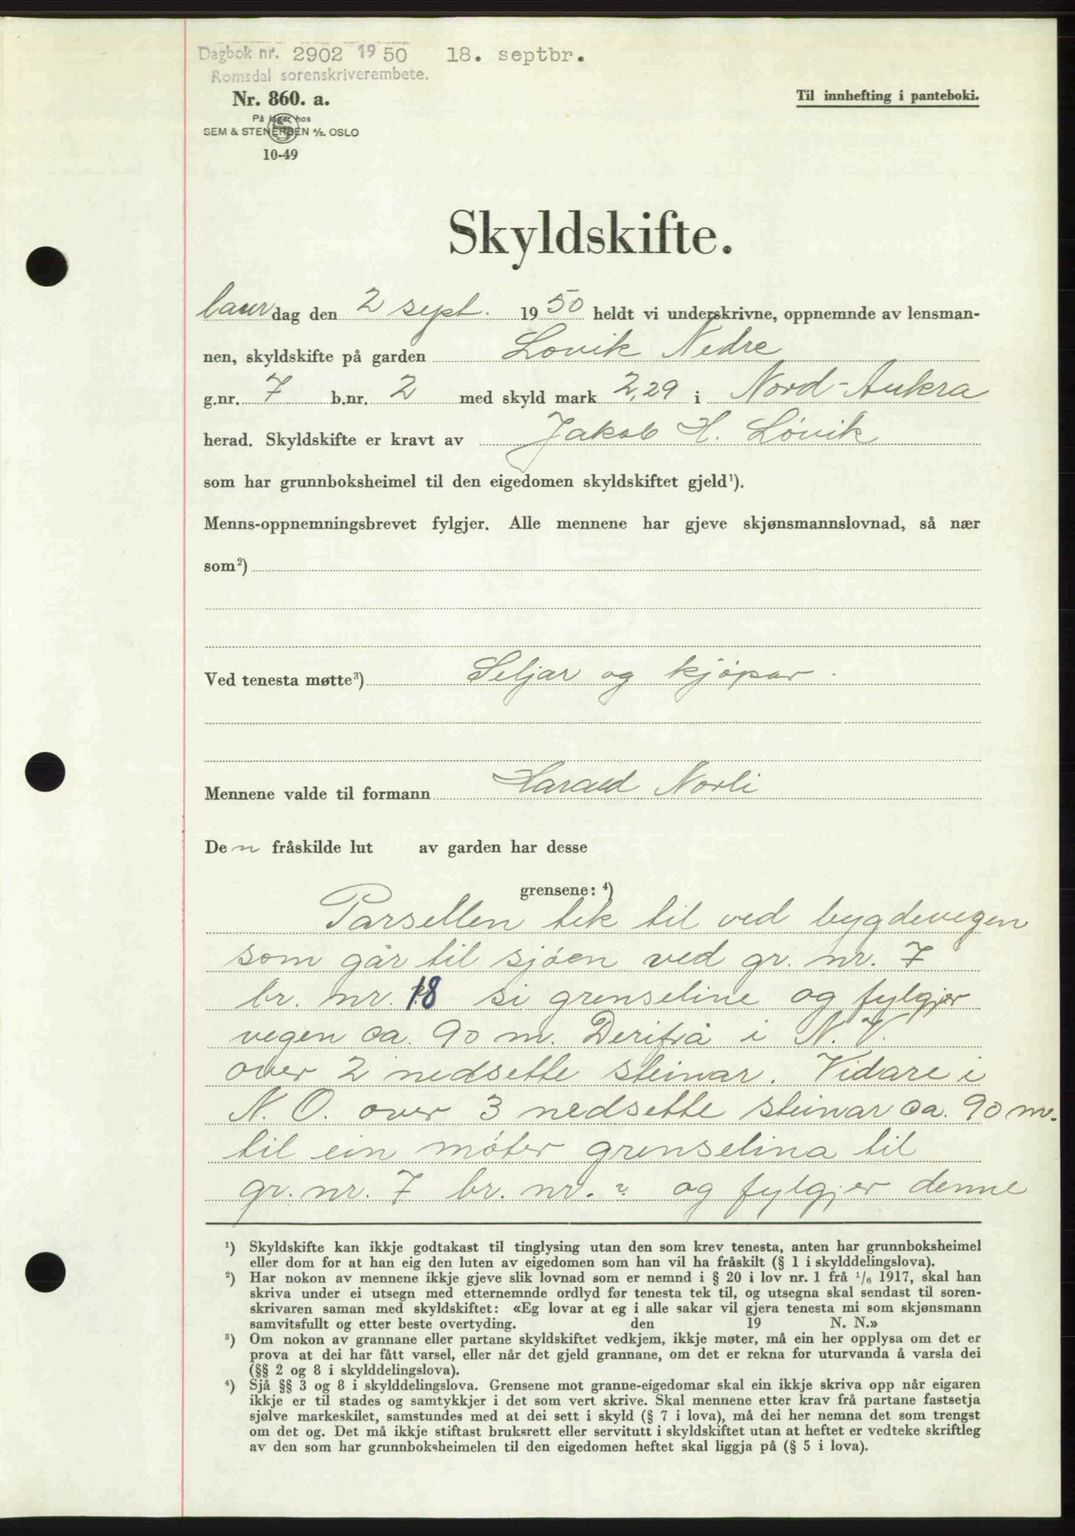 Dagbok nr. 2902 1950 18. septbr.
Romsdal sorenskriverembete.
Nr. 860. a.
Til innhefting i panteboki.
På lager hos
SEM & STENERSEN A/S. OSLO
S
10-49
Skyldskifte.
laurdag den 2 sept. 1950 heldt vi underskrivne, oppnemnde av lensman-
nen, skyldskifte på garden Lovik Nedre
g.nr. 7 b.nr. 2 med skyld mark 2,29 i Nord-Aukra
herad. Skyldskifte er kravt av Jakob H. Løvik
som har grunnboksheimel til den eigedomen skyldskiftet gjeld¹).
Menns-oppnemningsbrevet fylgjer. Alle mennene har gjeve skjønsmannslovnad, så nær
som²)
Ved tenesta møtte³) Seljar og kjöpar.
Mennene valde til formann Harald Norli
Den fråskilde lut av garden har desse
grensene: ⁴)
Parsellen tek til ved bygdevegen
som går til sjøen ved gr. nr. 7
br. nr. 18 si grenseline og fylgjer
vegen ca. 90 m. Derifrå i N.V.
over 2 nedsette steinar. Vidare i
N.O. over 3 nedsette steinar ca. 90 m.
til ein møter grenselina til
gr. nr. 7 br. nr. ? og fylgjer denne
¹) Skyldskifte kan ikkje godtakast til tinglysing utan den som krev tenesta, anten har grunnboksheimel
eller dom for at han eig den luten av eigedomen som han vil ha fråskilt (§ 1 i skylddelingslova).
²) Har nokon av mennene ikkje gjeve slik lovnad som er nemnd i § 20 i lov nr. 1 frå 1/6 1917, skal han
skriva under ei utsegn med etternemnde ordlyd før tenesta tek til, og utsegna skal sendast til soren-
skrivaren saman med skyldskiftet: «Eg lovar at eg i alle sakar vil gjera tenesta mi som skjønsmann
samvitsfullt og etter beste overtyding. den 19 N. N.»
³) Om nokon av grannane eller partane skyldskiftet vedkjem, ikkje møter, må ein her opplysa om det er
prova at dei har fått varsel, eller når det gjeld grannane, om det er rekna for uturvanda å varsla dei
(§§ 2 og 8 i skylddelingslova).
⁴) Sjå §§ 3 og 8 i skylddelingslova. Grensene mot granne-eigedomar skal ein ikkje skriva opp når eigaren
ikkje er til stades og samtykkjer i det som vert skrive. Skal mennene etter krav frå partane fastsetja
sjølve markeskilet, samstundes med at dei sett i skyld (§ 7 i lova), må dei her nemna det som trengst
om det og. Det må ikkje stiftast bruksrett eller servitutt i skyldskiftet utan at heftet er vedteke skriftleg
av den som har grunnboksheimelen til den eigedomen heftet skal liggja på (§ 5 i lova).